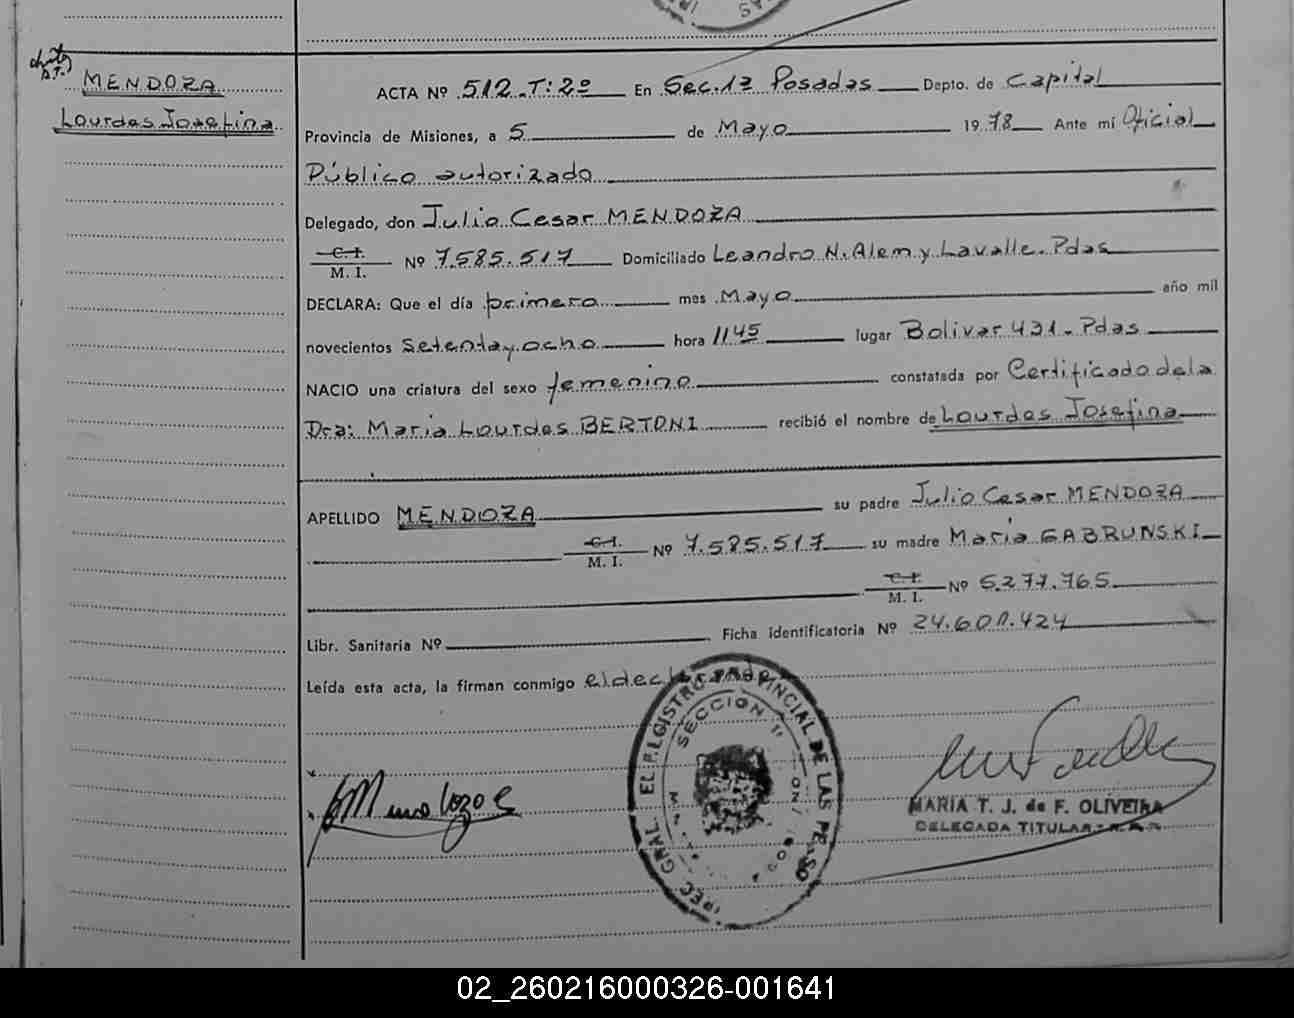 MENDOZA
Lourdes Josefina
ACTA Nº 512-T:2º En Sec. 1ª Posadas Depto. de Capital
Provincia de Misiones, a 5 de Mayo 1978 Ante mí Oficial
Público autorizado
Delegado, don Julio Cesar MENDOZA
C. I.
M. I. Nº 7.585.517 Domiciliado Leandro N. Alem y Lavalle-Pdas
DECLARA: Que el día primero mes Mayo año mil
novecientos Setenta y ocho hora 1145 lugar Bolivar 431-Pdas
NACIO una criatura del sexo femenino constatada por Certificado de la
Dra: Maria Lourdes BERTONI recibió el nombre de Lourdes Josefina
APELLIDO MENDOZA su padre Julio Cesar MENDOZA
C. I.
M. I. Nº 7.585.517 su madre Maria GABRUNSKI
C. I.
M. I. Nº 5.277.765
Libr. Sanitaria Nº Ficha identificatoria Nº 24.601.424
Leída esta acta, la firman conmigo el declarante
GRAL. EL REGISTRO PROVINCIAL DE LAS PERSO
SECCION
MARIA T. J. de F. OLIVEIRA
DELEGADA TITULAR
02_260216000326-001641